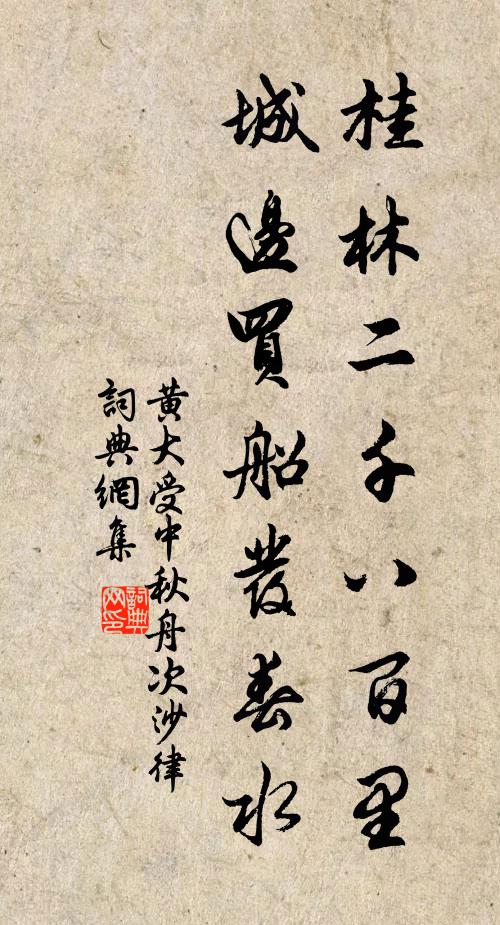 桂林二千八百里
城邊買船發春水
黃大受中秋舟次沙律
詞典網集
詞典網印